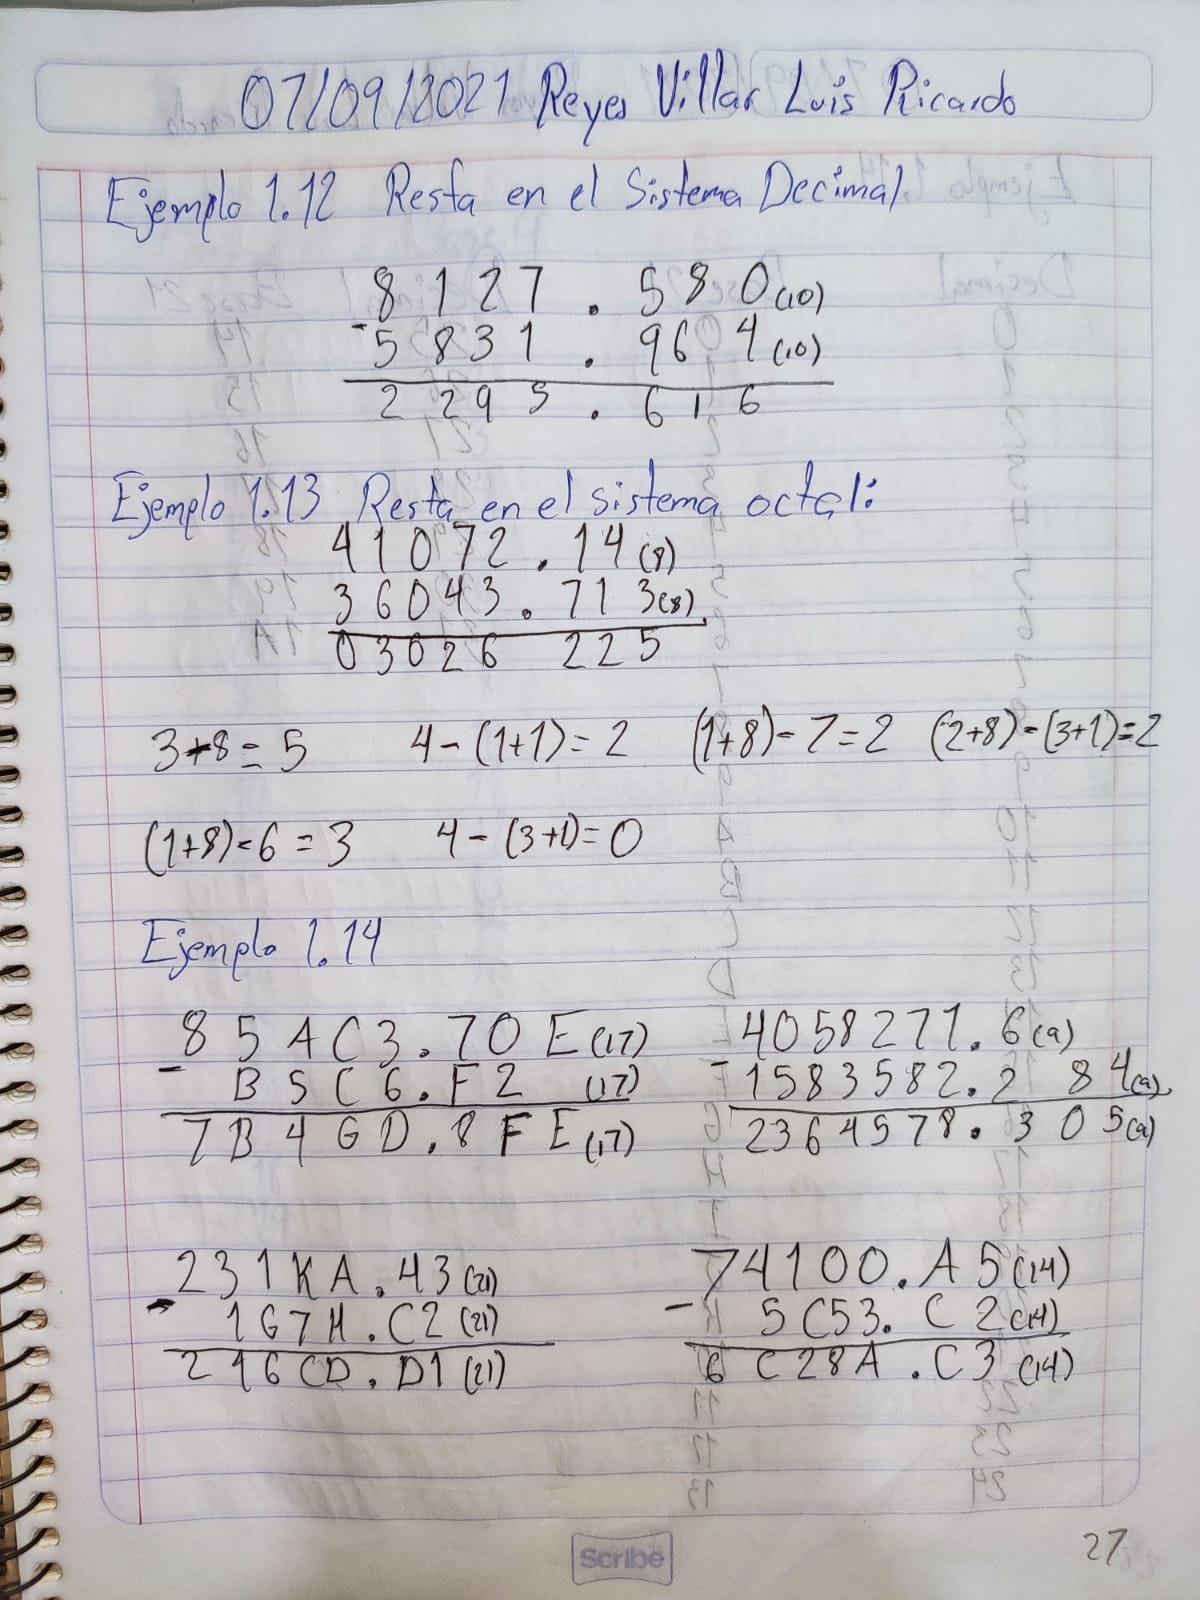 07/09/2021 Reyes Villar Luis Ricardo
Ejemplo 1.12 Resta en el Sistema Decimal.
8127.580(10)
-5831.964(10)
2295.616
Ejemplo 1.13 Resta en el sistema octal:
41072.14(8)
36043.713(8)
03026 225
3+8=5 4-(1+1)=2 (1+8)-7=2 (2+8)-(3+1)=2
(1+8)-6=3 4-(3+1)=0
Ejemplo 1.14
85AC3.70E(17) 4058271.6(9)
-B5C6.F2(17) -1583582.284(9)
7B4GD.8FE(17) 2364578.305(9)
231KA.43(21) 74100.A5(14)
-1G7H.C2(21) -5C53.C2(14)
216CD.D1(21) 6C28A.C3(14)
Scribe
27